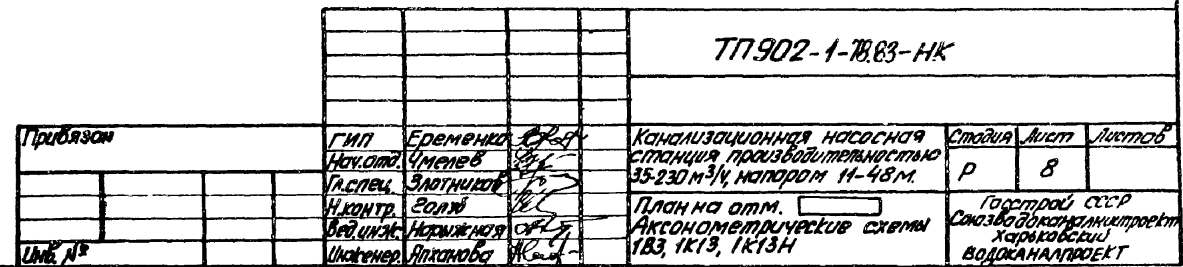 ТП902-1-78.83-НК
Привязан
Инв. №
ГИП Еременко
Нач.отд. Чмелев
Гл.спец. Злотников
Н.контр.
Вед.инж. Нарыжная
Инженер Япханова
Канализационная насосная
станция производительностью
35-230 м³/ч, напором 11-48 м.
Стадия Лист Листов
Р 8
План на отм.
Аксонометрические схемы
1В3, 1К13, 1К13Н
Госстрой СССР
Союзводоканалниипроект
Харьковский
ВОДОКАНАЛПРОЕКТ